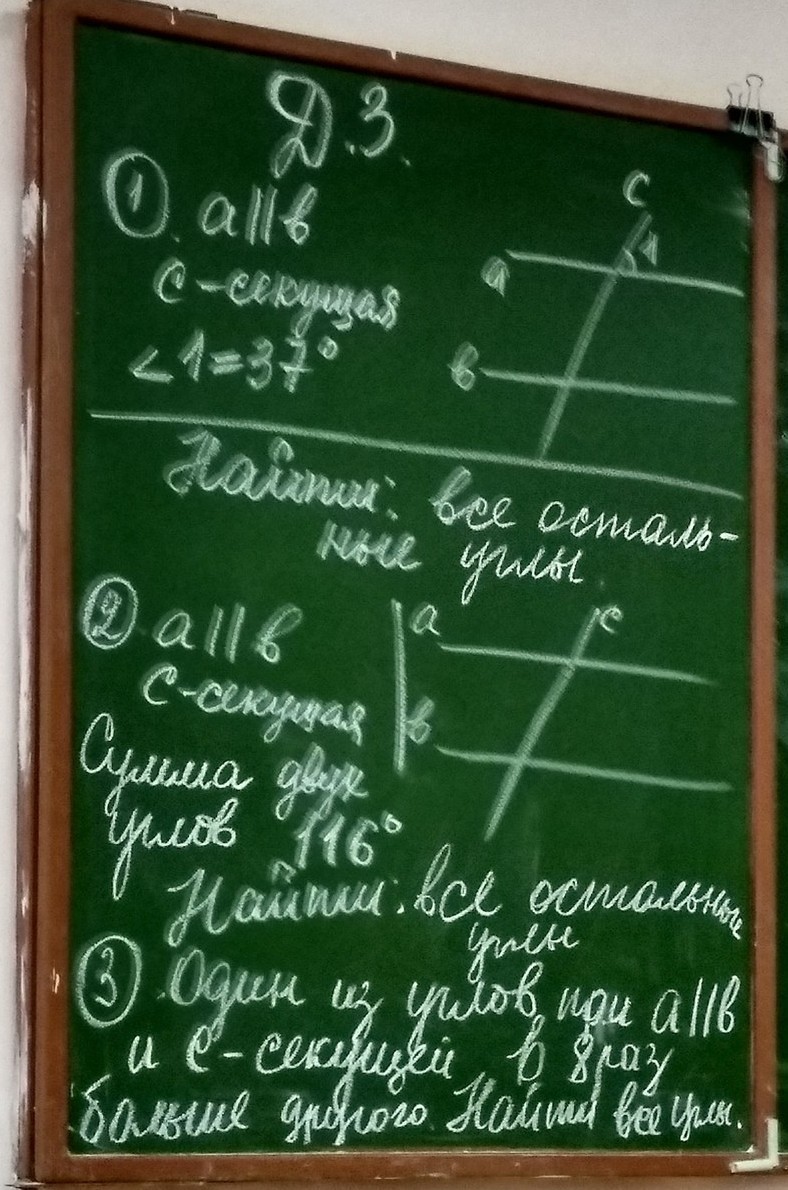 Д.З.
① a||b
c-секущая
<1=37°
c
1
a
b
Найти: все осталь-
ные углы.
② a||b
c-секущая
a
c
b
Сумма двух
углов 116°
Найти: все остальные
углы
③. Один из углов при a||b
и c-секущей в 8 раз
больше другого. Найти все углы.